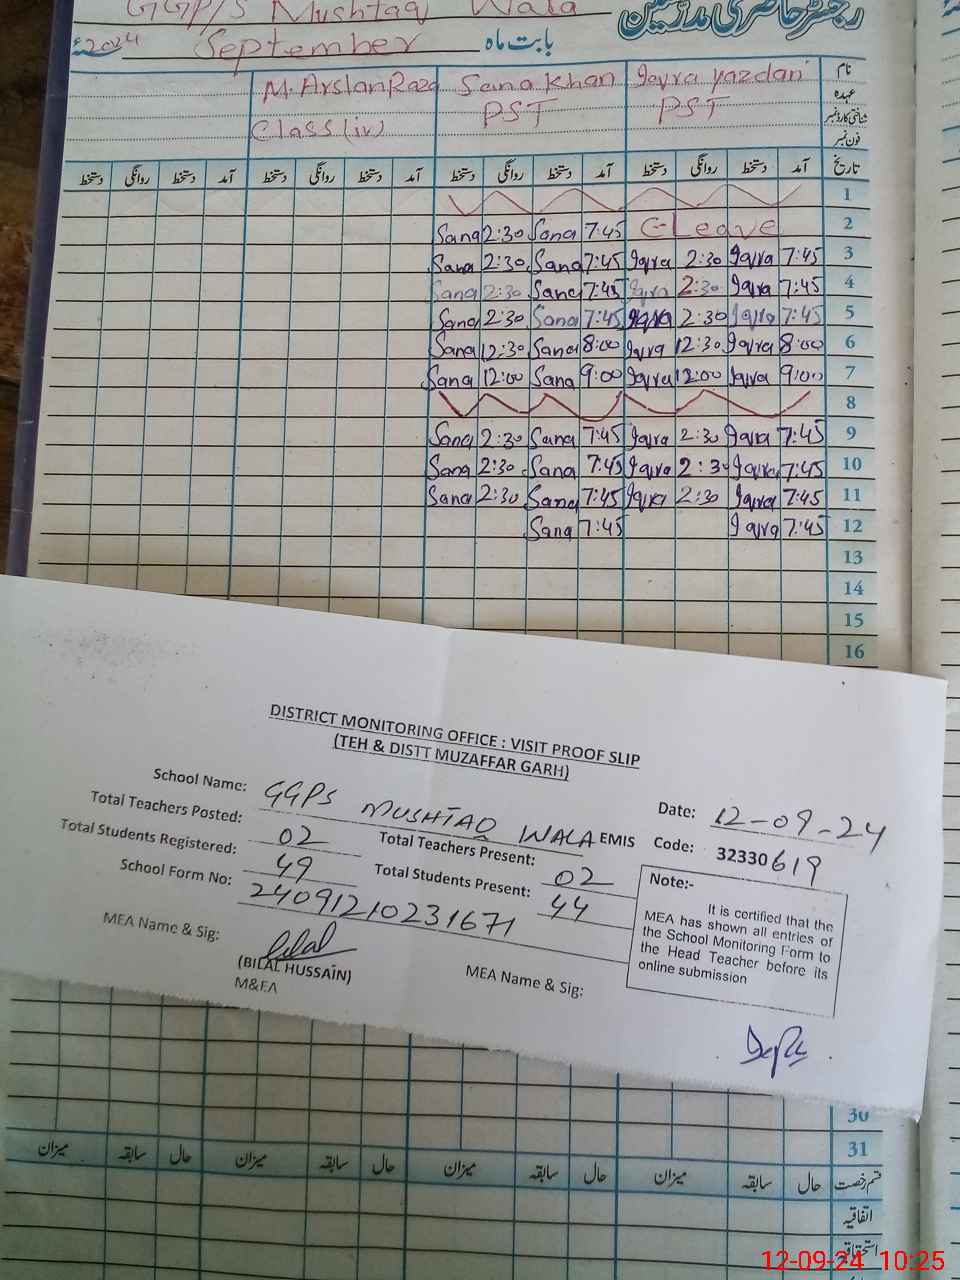 GGP/S Mushtaq Wala رجسٹر حاضری مدرسین
بابت ماہ September 2024ء
نام Iqra yazdan Sana Khan M. Arslan Raza
عہدہ PST PST Class (iv)
شناختی کارڈ نمبر
فون نمبر
تاریخ آمد دستخط روانگی دستخط آمد دستخط روانگی دستخط آمد دستخط روانگی دستخط آمد دستخط روانگی دستخط
1
Sana 2:30 Sana 7:45 C-Leave 2
Sana 2:30 Sana 7:45 Iqra 2:30 Iqra 7:45 3
Sana 2:30 Sana 7:45 Iqra 2:30 Iqra 7:45 4
Sana 2:30 Sana 7:45 Iqra 2:30 Iqra 7:45 5
Sana 12:30 Sana 8:00 Iqra 12:30 Iqra 8:00 6
Sana 12:00 Sana 9:00 Iqra 12:00 Iqra 9:00 7
8
Sana 2:30 Sana 7:45 Iqra 2:30 Iqra 7:45 9
Sana 2:30 Sana 7:45 Iqra 2:30 Iqra 7:45 10
Sana 2:30 Sana 7:45 Iqra 2:30 Iqra 7:45 11
Sana 7:45 Iqra 7:45 12
13
14
15
16
DISTRICT MONITORING OFFICE : VISIT PROOF SLIP
(TEH & DISTT MUZAFFAR GARH)
School Name: GGPS MUSHTAQ WALA Date: 12-09-24
EMIS Code: 32330619
Total Teachers Posted: 02 Total Teachers Present: 02
Total Students Registered: 49 Total Students Present: 44
School Form No: 24091210231671
Note:-
It is certified that the
MEA has shown all entries of
the School Monitoring Form to
the Head Teacher before its
online submission
MEA Name & Sig: Bilal
(BILAL HUSSAIN)
M&EA
MEA Name & Sig:
30
31
قسم رخصت حال سابقہ میزان حال سابقہ میزان حال سابقہ میزان حال سابقہ میزان
اتفاقیہ
استحقاقیہ
12-09-24 10:25